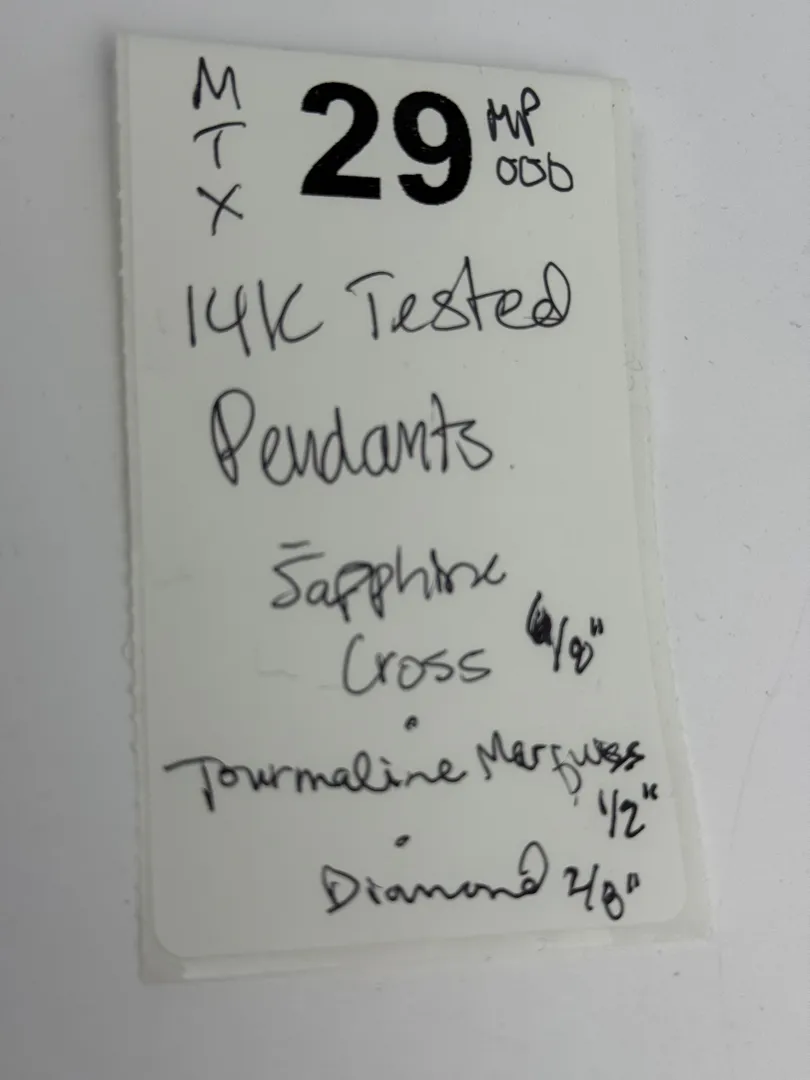 M
T
X
29
MP
000
14K Tested
Pendants
Sapphire
Cross /8"
Tourmaline Marquess
1/2"
Diamond 2/8"